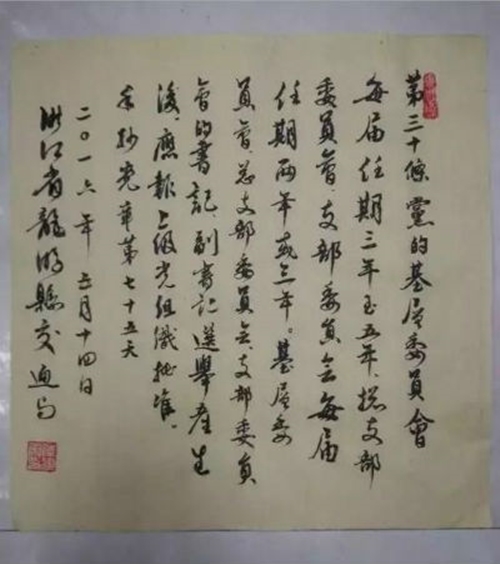 第三十條黨的基层委員會
每届任期三年至五年、總支部
委員會、支部委員会每届
任期两年或三年。基层委
員會、总支部委員会、支部委員
會的書記、副書記選舉產生
後,應報上级党组織批准。
手抄党章第七十五天
二〇一六年 五月十四日
浙江省龍游縣交通局